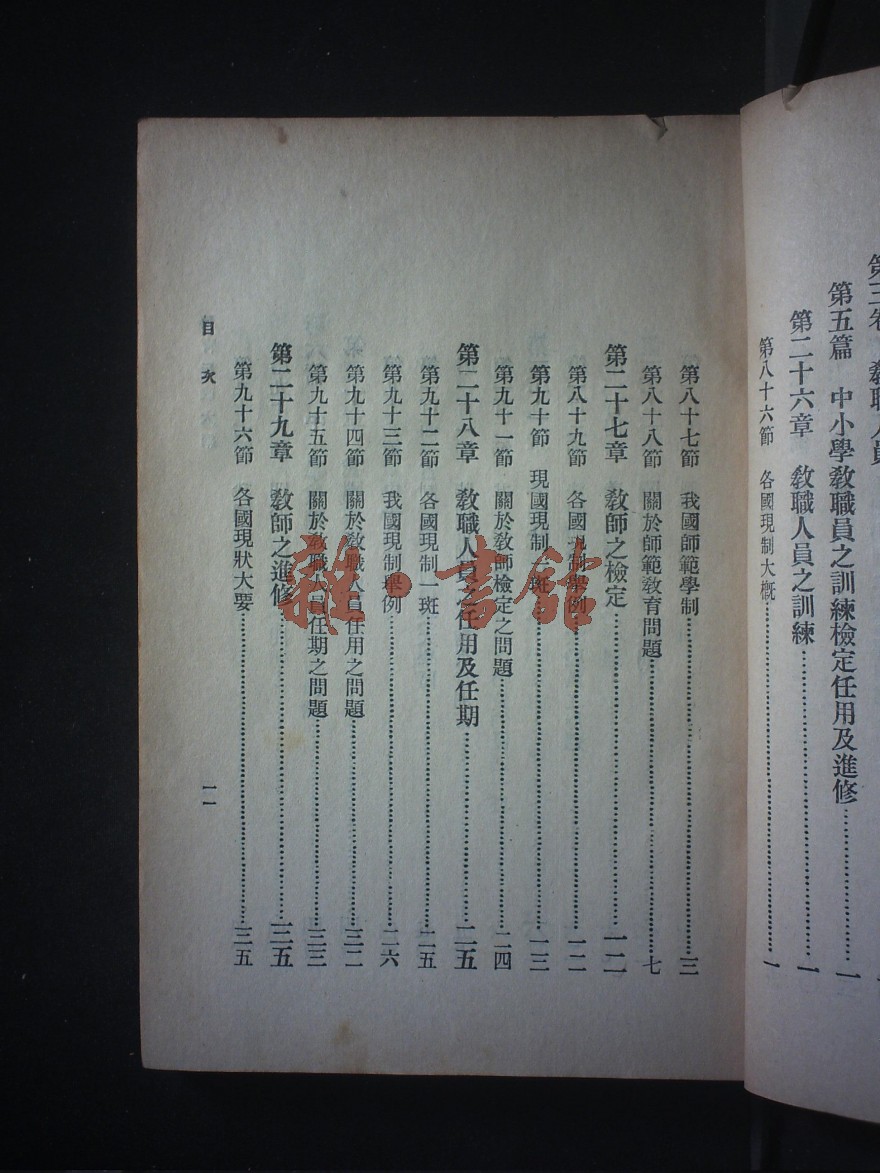 第三卷 教職人員
第五篇 中小學教職員之訓練檢定任用及進修……一
第二十六章 教職人員之訓練……一
第八十六節 各國現制大概……一
第八十七節 我國師範學制……三
第八十八節 關於師範教育問題……七
第二十七章 教師之檢定……一二
第八十九節 各國現制舉例……一二
第九十節 現國現制一斑……一三
第九十一節 關於教師檢定之問題……二四
第二十八章 教職人員之任用及任期……二五
第九十二節 各國現制一斑……二五
第九十三節 我國現制舉例……二六
第九十四節 關於教職人員任用之問題……三二
第九十五節 關於教職人員任期之問題……三三
第二十九章 教師之進修……三五
第九十六節 各國現狀大要……三五
目次
一一
雜·書館